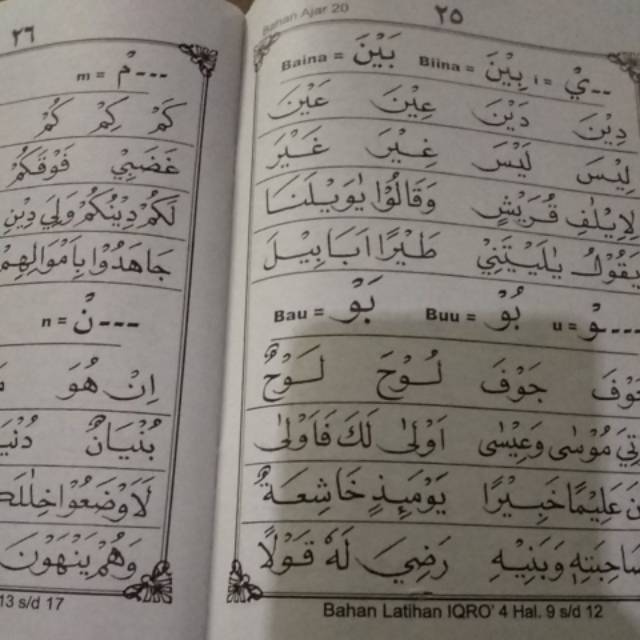 Bahan Ajar 20 ٢٥
ـيْ = i بِيْنَ = Biina بَيْنَ = Baina
دِيْنَ دَيْنَ عِيْنَ عَيْنَ
لِيْسَ لَيْسَ غِيْرَ غَيْرَ
لِاِيْلٰفِ قُرَيْشٍ وَقَالُوْا يٰوَيْلَنَا
يَقُوْلُ يٰلَيْتَنِيْ طَيْرًا اَبَابِيْلَ
---- وْ = u بُوْ = Buu بَوْ = Bau
جَوْفَ لُوْحَ لَوْحٌ
مُوْسٰى وَعِيْسٰى اَوْلٰى لَكَ فَاَوْلٰى
عَلِيْمًا خَبِيْرًا يَوْمَئِذٍ خَاشِعَةٌ
وَبَنِيْهِ رَضِيَ لَهٗ قَوْلًا
Bahan Latihan IQRO' 4 Hal. 9 s/d 12
٢٦
--- مْ = m
كَمْ كِمْ كُمْ
غَضَبِيْ فَوْقَكُمْ
لَكُمْ دِيْنُكُمْ وَلِيَ دِيْنِ
جَاهَدُوْا بِاَمْوَالِهِمْ
--- نْ = n
اِنْ هُوَ
بُنْيَانٌ
لَاَوْضَعُوْا خِلٰلَكُمْ
وَهُمْ يَنْهَوْنَ
13 s/d 17